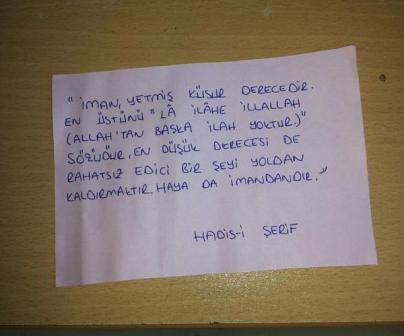 "İMAN, YETMİŞ KÜSUR DERECEDİR.
EN ÜSTÜNÜ "LÂ İLÂHE İLLALLAH
(ALLAH'TAN BAŞKA İLAH YOKTUR)"
SÖZÜDÜR, EN DÜŞÜK DERECESİ DE
RAHATSIZ EDİCİ BİR ŞEYİ YOLDAN
KALDIRMAKTIR. HAYA DA İMANDANDIR."
HADİS-İ ŞERİF